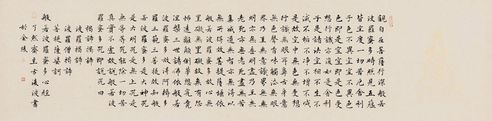 觀自在菩薩行深般若
波羅蜜多時照見五蘊
皆空度一切苦厄舍利
子色不異空空不異色
色即是空空即是色受
想行識亦復如是舍利
子是諸法空相不生不
滅不垢不淨不增不減
是故空中無色無受想
行識無眼耳鼻舌身意
無色聲香味觸法無眼
界乃至無意識界無無
明亦無無明盡乃至無
老死亦無老死盡無苦
集滅道無智亦無得以
無所得故菩提薩埵依
般若波羅蜜多故心無
罣礙無罣礙故無有恐
怖遠離顛倒夢想究竟
涅槃三世諸佛依般若
波羅蜜多故得阿耨多
羅三藐三菩提故知般
若波羅蜜多是大神咒
是大明咒是無上咒是
無等等咒能除一切苦
真實不虛故說般若波
羅蜜多咒即說咒曰
揭諦揭諦
波羅揭諦
波羅僧揭諦
菩提薩婆訶
般若波羅蜜多心經
齋主書
於金陵